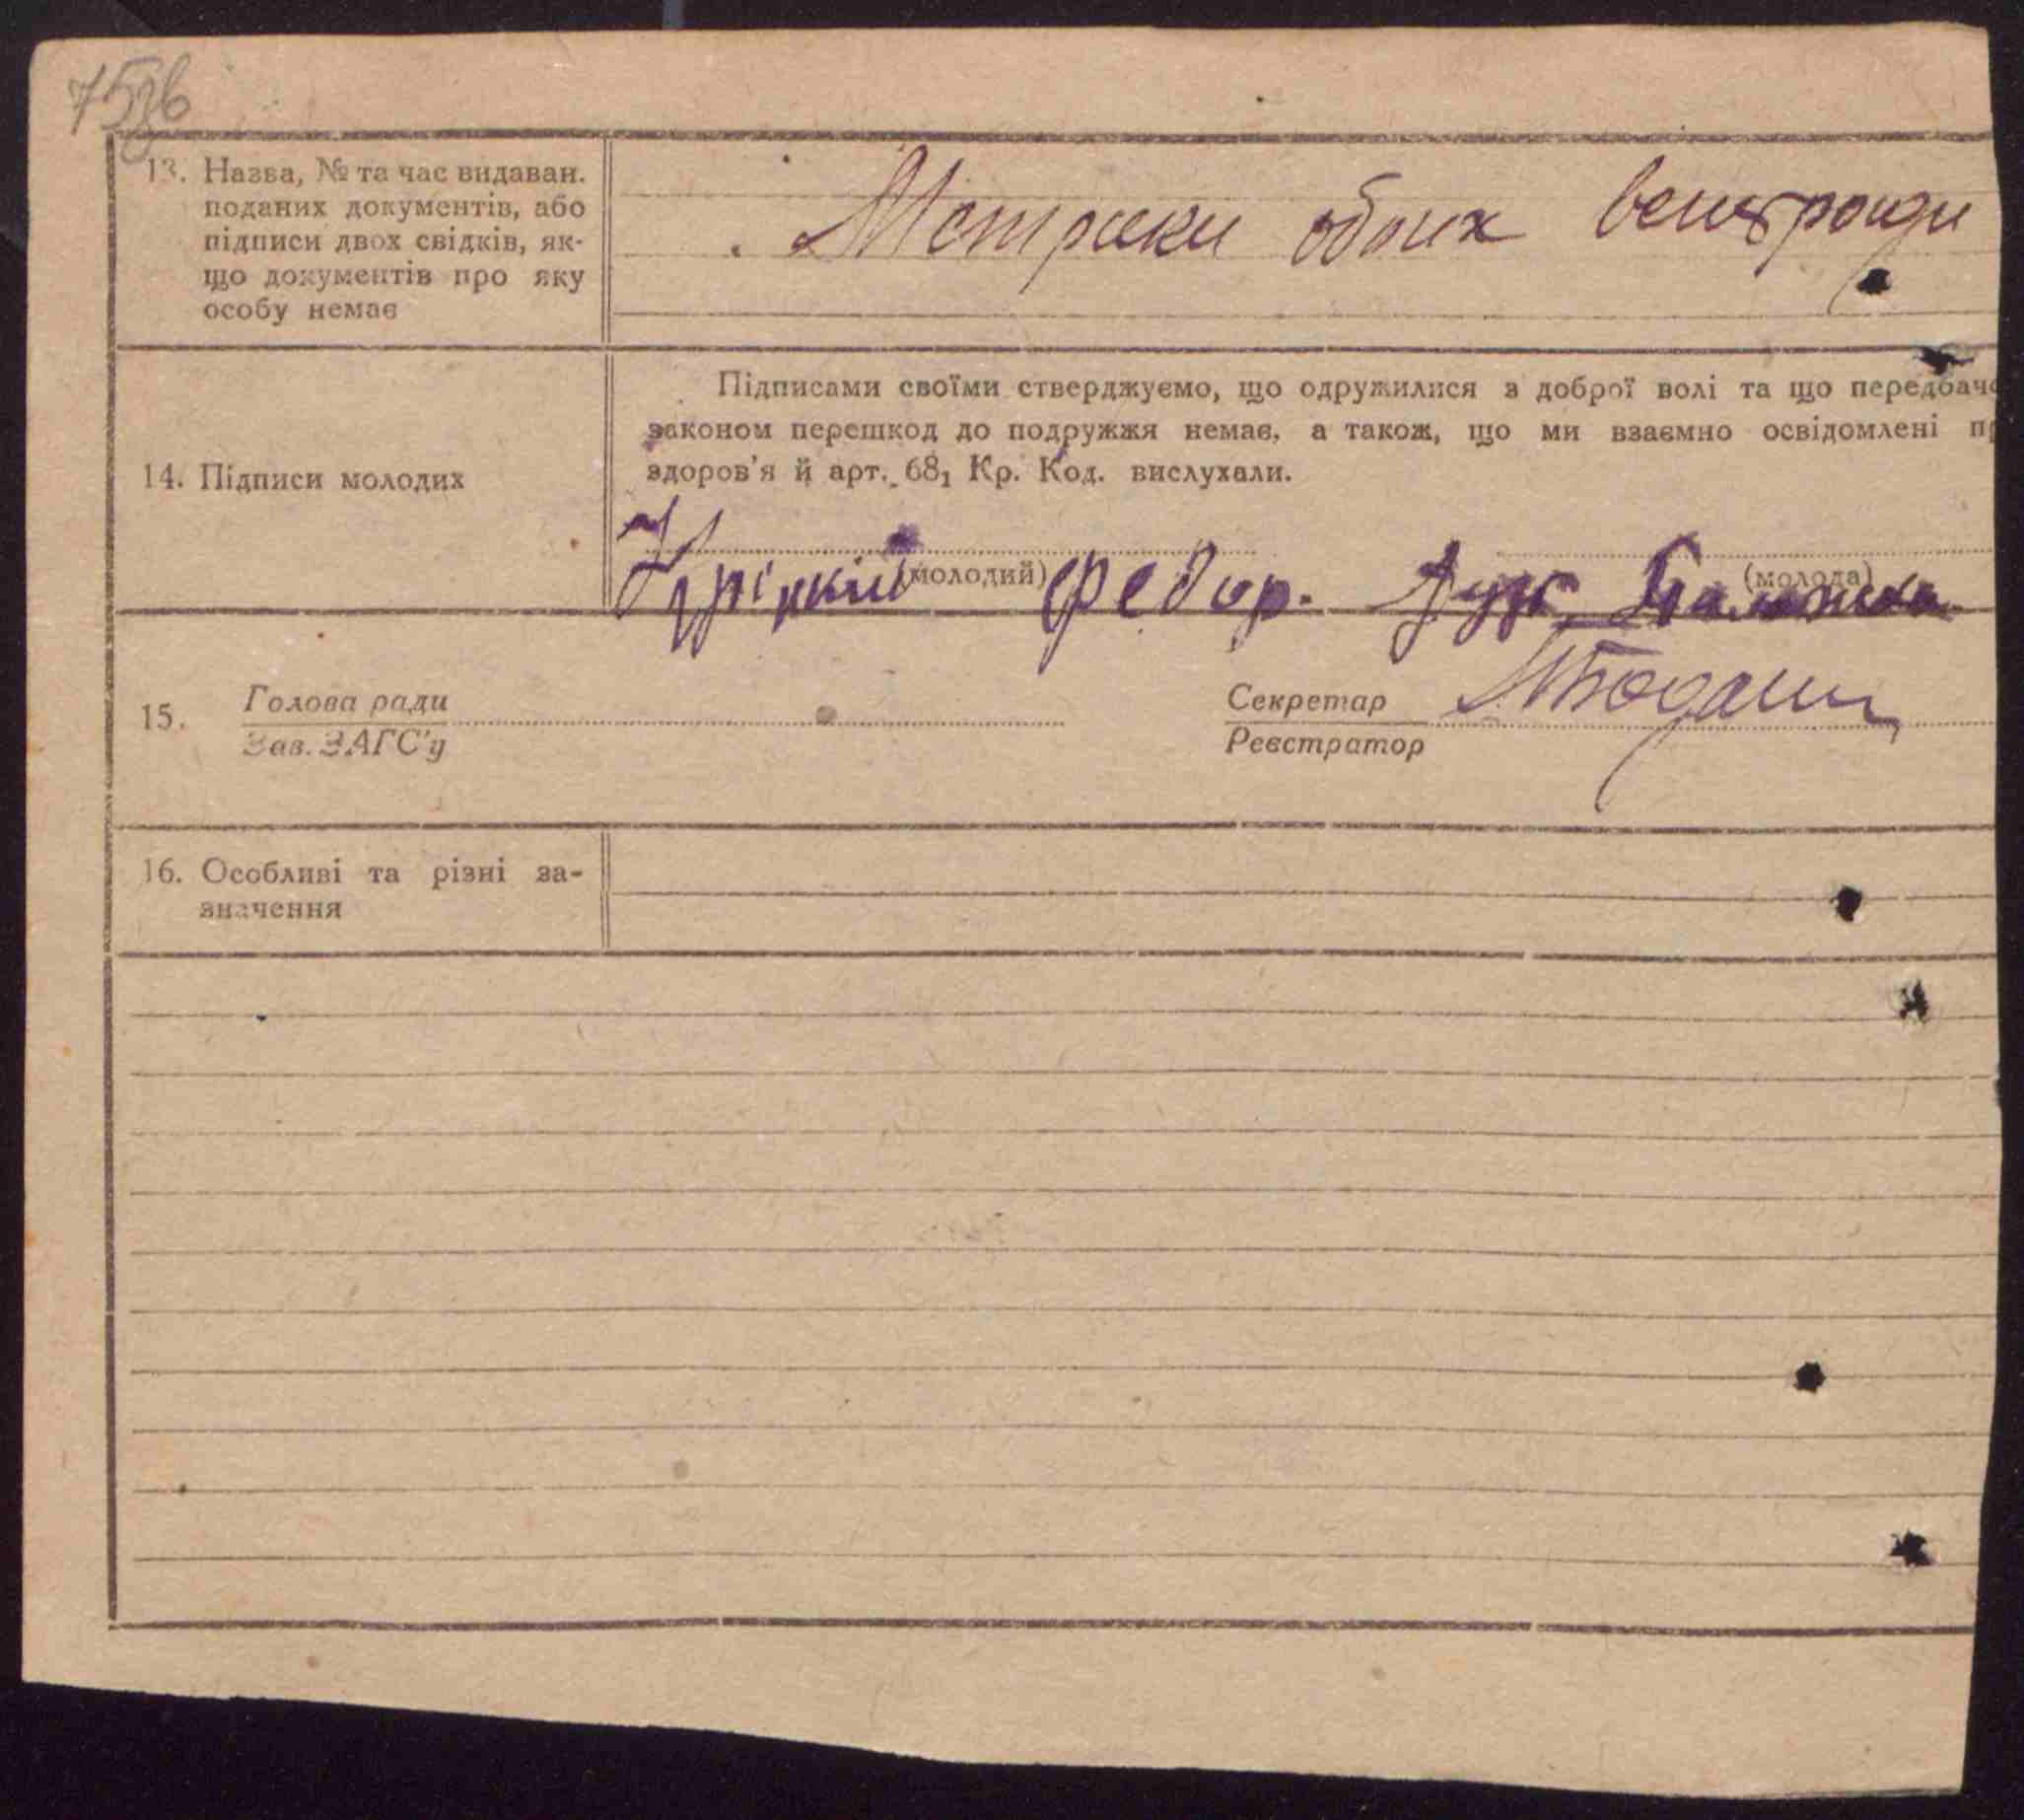 75зв
13. Назва, № та час видаван.
поданих документів, або
підписи двох свідків, як-
що документів про яку
особу немає
Метрики обоих
14. Підписи молодих
Підписами своїми стверджуємо, що одружилися з доброї волі та що передбаче
законом перешкод до подружжя немає, а також, що ми взаємно освідомлені пр
здоров'я й арт. 68₁ Кр. Код. вислухали.
(молодий)
(молода)
Федор.
15. Голова ради
Зав. ЗАГС'у
Секретар
Реєстратор
16. Особливі та різні за-
значення